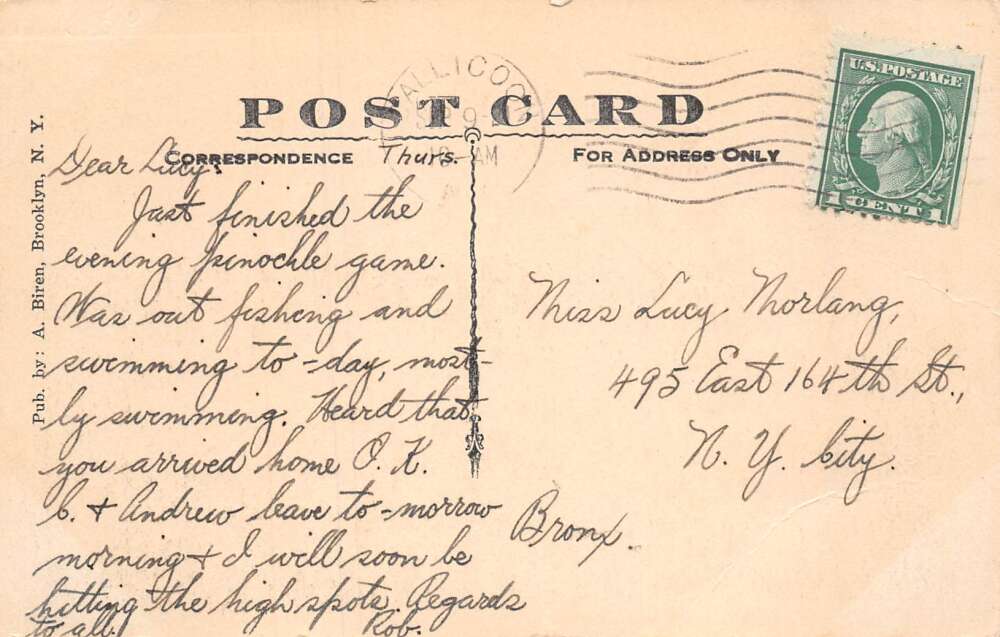 POST CARD
CORRESPONDENCE
FOR ADDRESS ONLY
Pub. by: A. Biren, Brooklyn, N. Y.
U.S. POSTAGE
1 CENT 1
9
AM
Thurs.
Dear Lucy:
Just finished the
evening pinochle game.
Was out fishing and
swimming to-day, most-
ly swimming. Heard that
you arrived home O. K.
C. + Andrew leave to-morrow
morning + I will soon be
hitting the high spots. Regards
to all. Rob.
Miss Lucy Morlang,
495 East 164th St.,
N. Y. City.
Bronx.